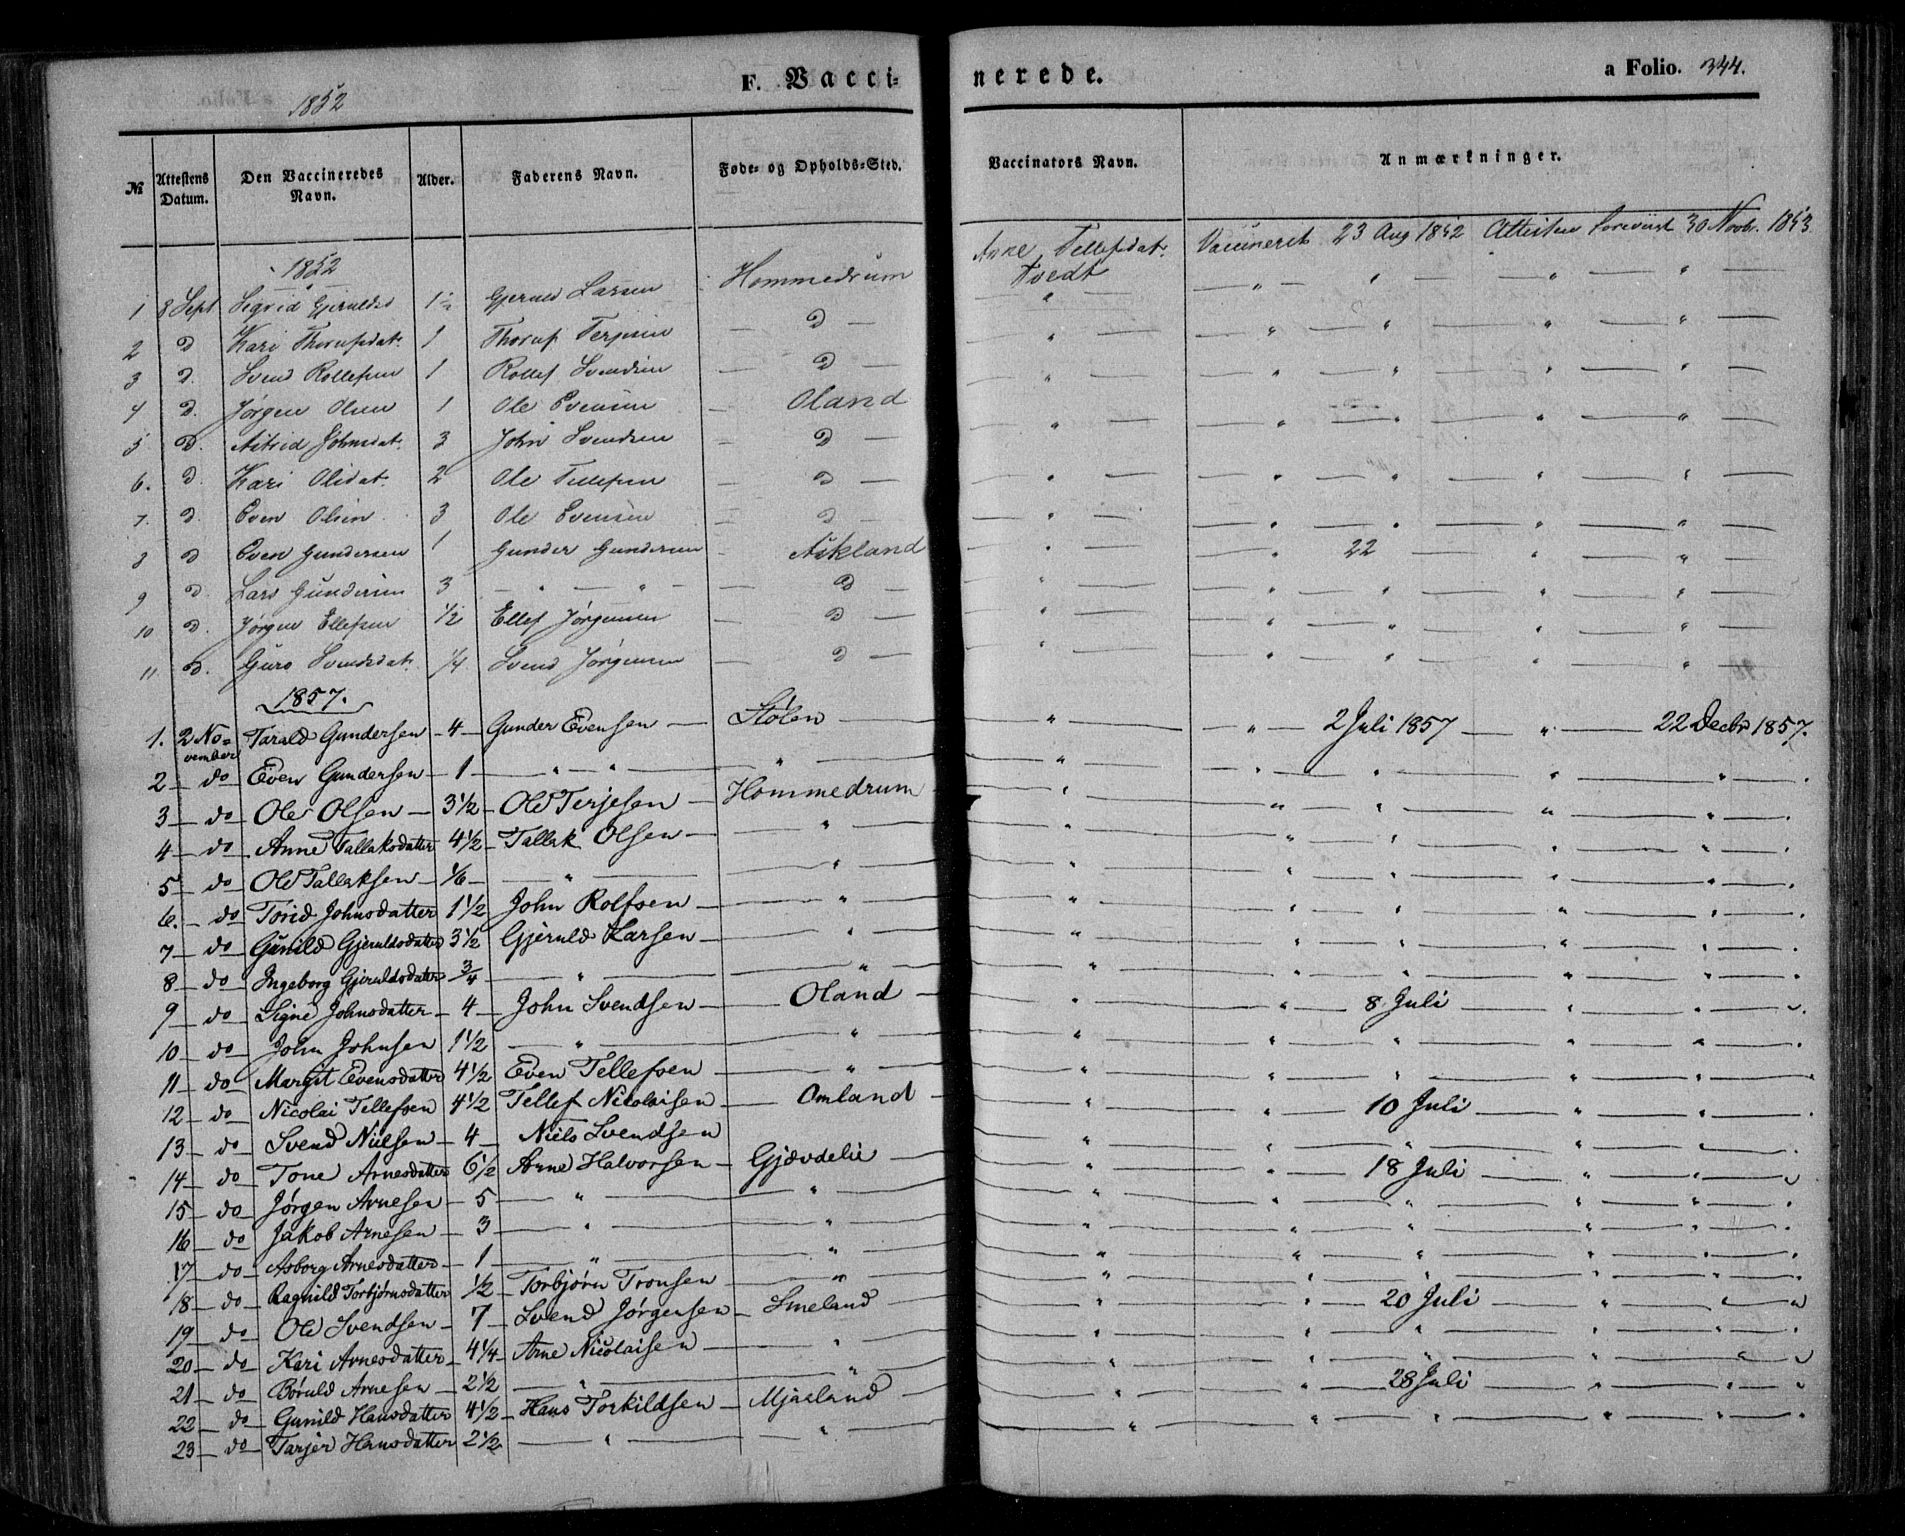 1852 F. Vacci- nerede. a Folio. 344.
№ Attestens Datum. Den Vaccineredes Navn. Alder. Faderens Navn. Føde- og Opholds-Sted. Vaccinators Navn. Anmærkninger.
1852
1 8 Sept Sigrid Gjeruldsd 1½ Gjeruld Larsen Hommedrum Anne Tellefsdat. Tvedt Vaccineret 23 Aug 1852 Attesten foreviist 30 Novbr. 1853
2 D Kari Thorufsdat. 1 Thoruf Terjesen — D — " — " — " — " — "
3 D. Svend Rollefsen 1 Rollef Svendsen — D — " — " — " — " — "
4 D. Jørgen Olsen 1 Ole Evensen — Oland " — " — " — " — "
5 D. Astrid Johnsdat. 3 John Svendsen — D — " — " — " — " — "
6. D. Kari Olsdat. 2 Ole Tellefsen — D — " — " — " — " — "
7. D. Even Olsen 3 Ole Evensen — D — " — " — " — " — "
8 D Even Gundersen 1 Gunder Gundersen — Askland " — " 22 " — "
9 D. Lars Gundersen 3 — " — " — — D — " — " — " — " — "
10 D. Jørgen Ellefsen 1/2 Ellef Jørgensen — D — " — " — " — " — "
11 D. Guro Svendsdat. 1/4 Svend Jørgensen — D — " — " — " — " — "
1857.
1. 2 November Tarald Gundersen — 4 — Gunder Evensen — Stølen — " — " — 2 Juli 1857 — " — 22 Decbr 1857.
2 — do — Even Gundersen — 1 — " — " — " — " — " — " — " — " .
3 — do — Ole Olsen — 3 1/2 — Ole Terjesen — Hommedrum " — " — " — " — " .
4 — do — Anne Tallaksdatter 4 1/2 — Tallak Olsen — " — " — " — " — " — " .
5 — do — Ole Tallaksen — 1/6 — " — " — " — " — " — " — " .
6. — do — Torid Johnsdatter 1 1/2 John Rolfsen — " — " — " — " — " — " .
7 — do — Gunild Gjeruldsdatter 3 1/2 Gjeruld Larsen — " — " — " — " — " — " .
8 — do — Ingeborg Gjeruldsdatter 3/4 — " — " — " — " — " — " — " .
9 — do — Signe Johnsdatter — 4 — John Svendsen — Oland — " — " — 8 Juli — " — " — " .
10 — do — John Johnsen 1 1/2 — " — " — " — " — " — " — " .
11 — do — Margit Evensdatter 4 1/2 Even Tellefsen — " — " — " — " — " — " .
12 — do — Nicolai Tellefsen 4 1/2 Tellef Nikolaisen — Omland — " — " — 10 Juli — " — " .
13 — do — Svend Nielsen — 4 — Niels Svendsen " — " — " — " — " .
14 — do — Tone Arnesdatter 6 1/2 Arne Halvorsen — Gjævdelie — " — " — 18 Juli — " — " — "
15 — do — Jørgen Arnesen — 5 — " — " — " — " — " — " — " .
16 — do — Jakob Arnesen — 3 — " — " — " — " — " — " — " .
17 — do — Asborg Arnesdatter — 1 — " — " — " — " — " — " — " .
18 — do — Ragnild Torbjørnsdatter 1/2 Torbjørn Tronsen — " — " — " — " — " — " .
19 — do — Ole Svendsen — 7 — Svend Jørgensen — Smeland — " — " — 20 Juli — " — " — "
20 — do — Kari Arnesdatter — 4 1/4 — Arne Nicolaisen — " — " — " — " — " — " .
21 — do — Børuld Arnesen — 2 1/2 — " — " — " — " — " — " — "
22 — do — Gunild Hansdatter 4 1/2 — Hans Torkildsen — Mjaaland — " — " — 28 Juli — " — " — "
23 — do — Tarjer Hansdatter 2 1/2 — " — " — " — " — " — " — " .